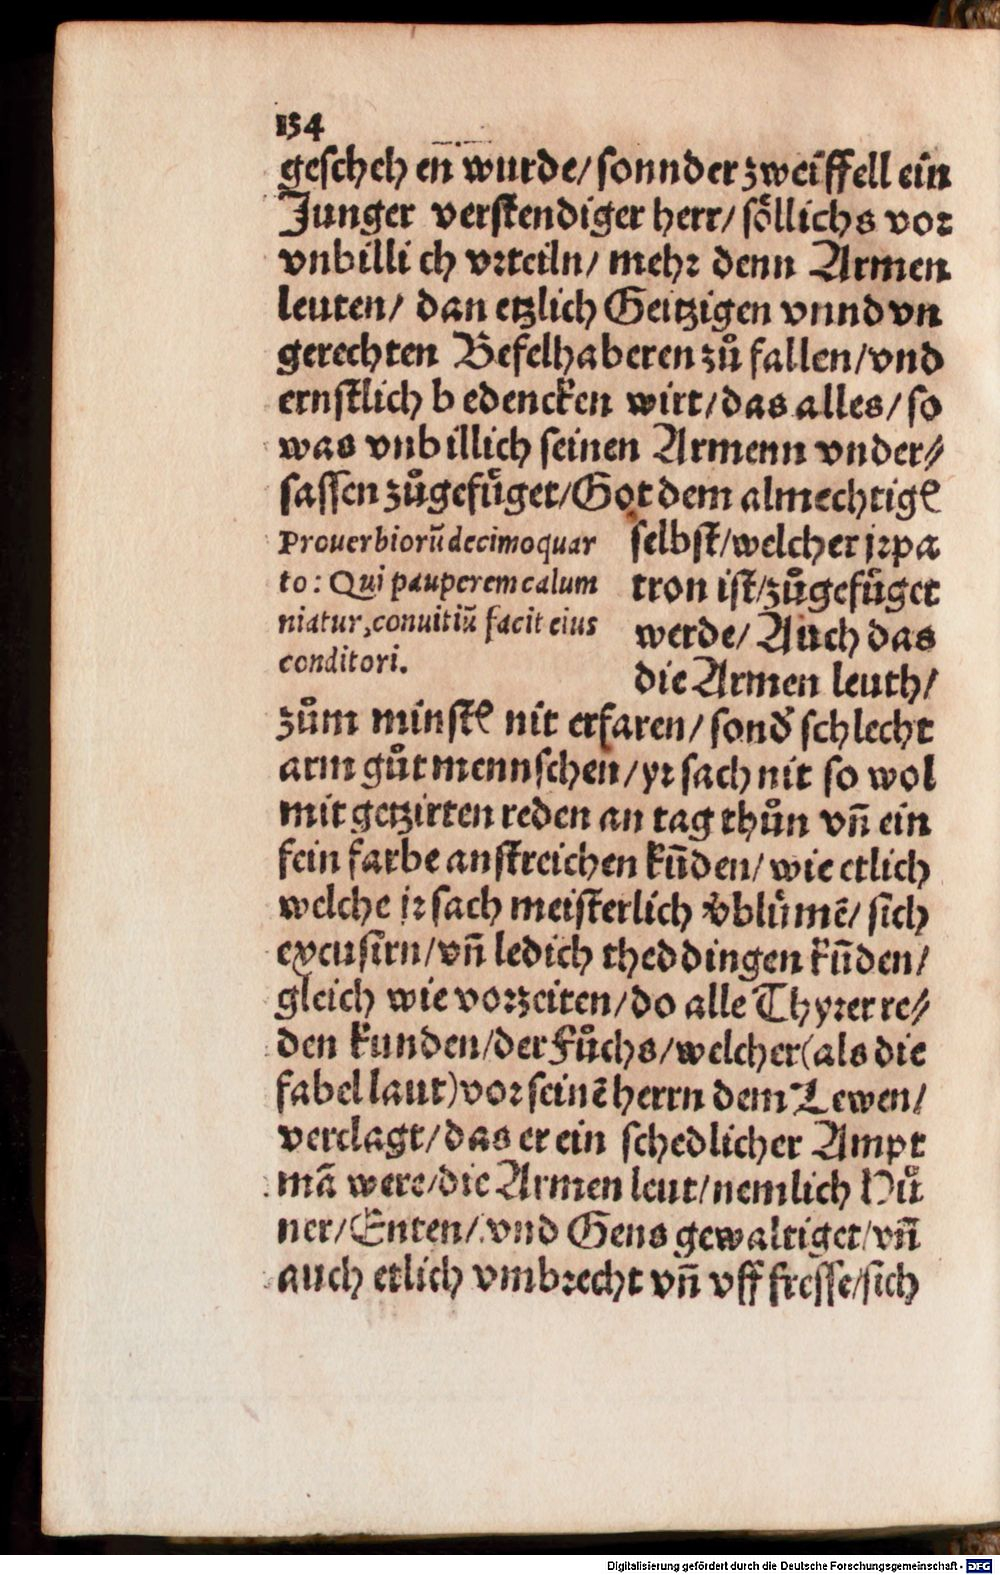 154
geſcheh en̄ wurde/ſonnder zweiffell ein
Junger verſtendiger herr/ ſoͤllichs vor
vnbilli ch vrteiln/ mehr denn Armen
leuten/ dan etzlich Geitzigen vnnd vn
gerechten Befelhaberen zuͦ fallen/vnd
ernſtlich b edencken wirt/das alles/ ſo
was vnbillich ſeinen Armenn vnder⸗
ſaſſen zuͦgefuͤget/Got dem almechtigẽ
ſelbſt/welcher jrpa
tron iſt/zuͦgefuͤget
werde/ Auch das
die Armen leuth/
Prouerbiorũ decimoquar
to: Qui pauperem calum
niatur,conuitiũ facit eius
conditori.
zuͦm minſtẽ nit erfaren/ ſond̓ ſchlecht
arm guͦt mennſchen/yr ſach nit ſo wol
mit getzirten reden an tag thuͦn vñ ein
fein farbe anſtreichen kũden/ wie etlich
welche jr ſach meiſterlich v̓bluͤmẽ/ ſich
excuſirn/vñ ledich theddingen kũden/
gleich wie vorzeiten/do alle Thyrer re⸗
den kunden/der Fuͦchs/welcher(als die
fabel laut)vor ſeinẽ herrn dem Lewen/
verclagt/das er ein ſchedlicher Ampt
mã were/die Armen leut/nemlich Huͦ
ner/Enten/ vnd Gens gewaltiget/vñ
auch etlich vmbrecht vñ vff freſſe/ſich
Digitalisierung gefördert durch die Deutsche Forschungsgemeinschaft - DFG